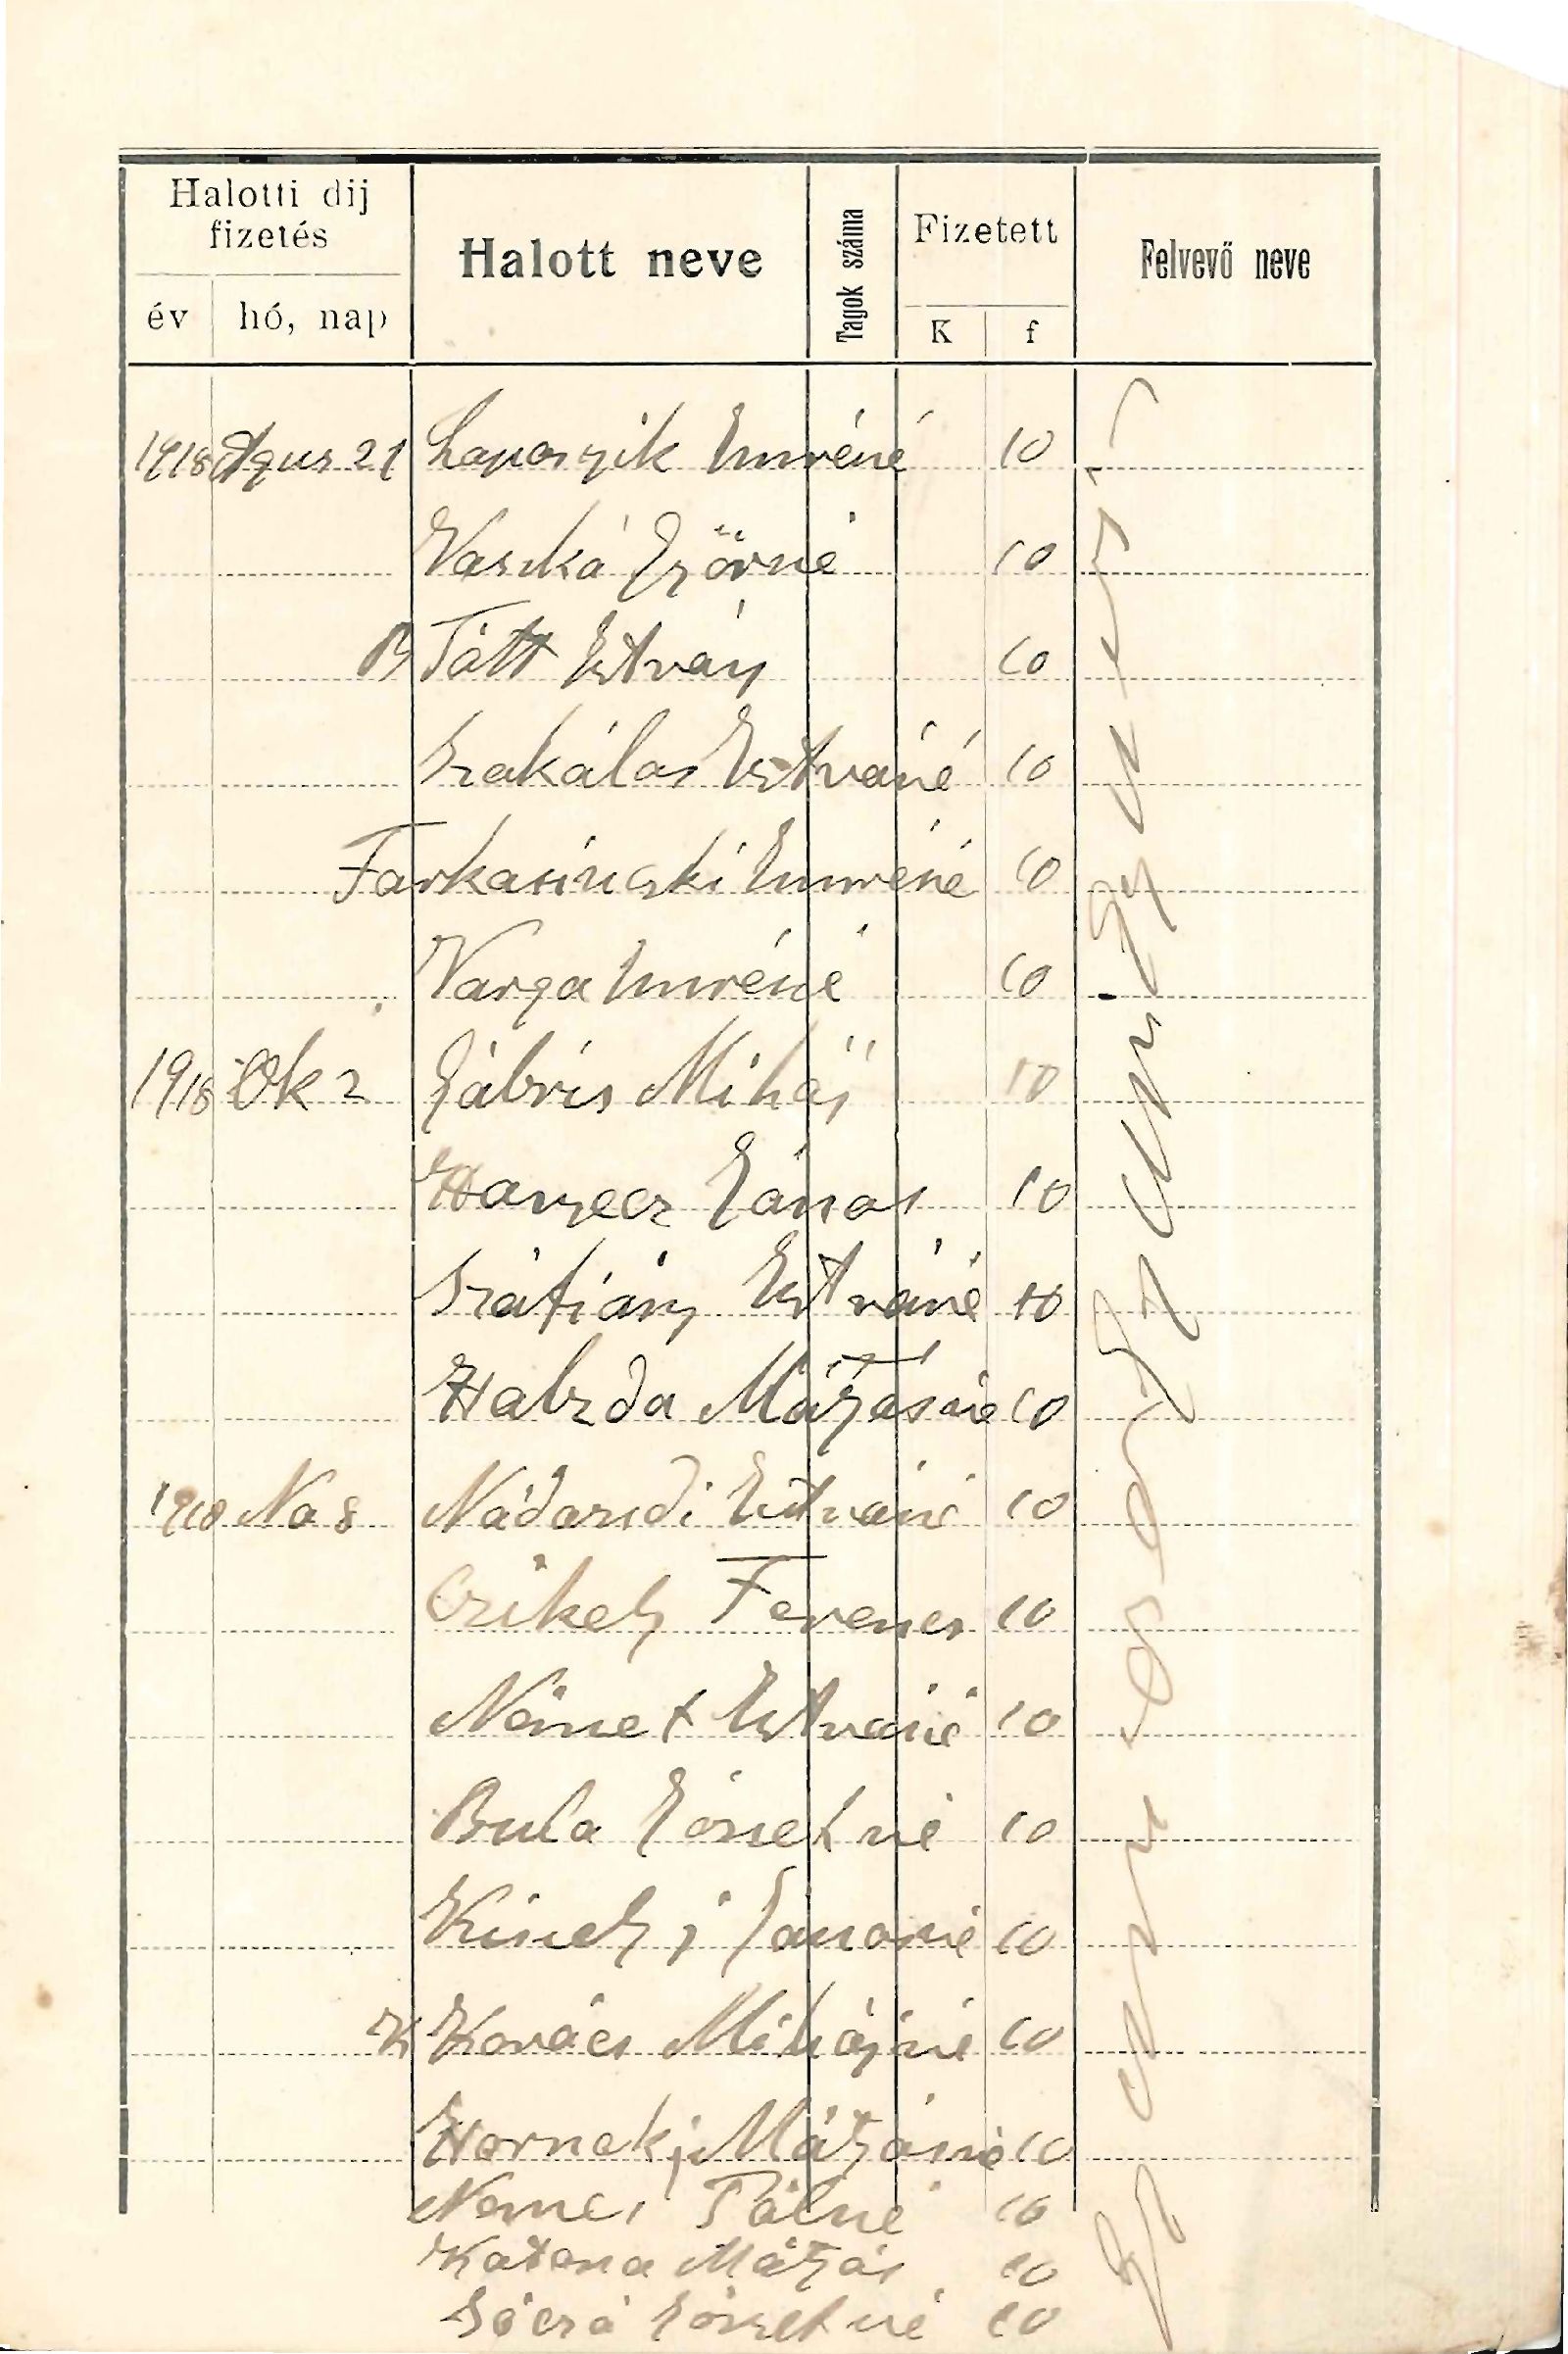 Halotti dij fizetés
Halott neve
Tagok száma
Fizetett
Felvevő neve
év hó, nap
K f
1918 Agus 21 Laposzik Imréné 10
Vaszká Győrné 10
B Tátt Istvány 10
Szakálas Istváné 10
Farkasinszki Imréné 10
Varga Imréné 10
1918 Ok 2 Gábris Miháj 10
János 10
Szátiány Istváné 10
Habzda Mátyásné 10
1918 No 8 Nádasdi Istváné 10
Czikely Ferencs 10
Német Istváné 10
Bula Jósefné 10
Janosné 10
K Kovács Mihájné 10
Hornokj Mátyásné 10
Nemes Pálné 10
Katona Mátyás 10
Józsefné 10